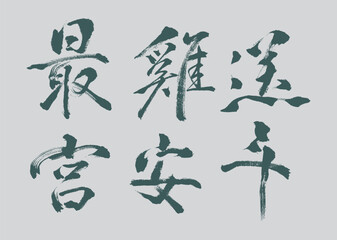 最雞送
宮安斗